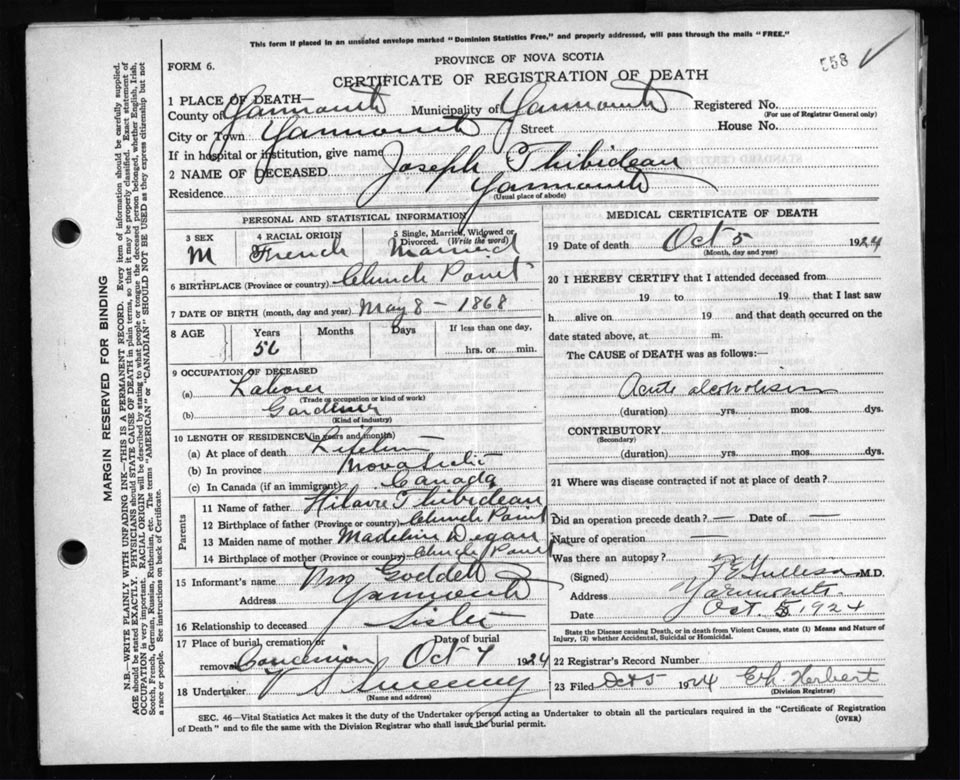 This form if placed in an unsealed envelope marked "Dominion Statistics Free," and properly addressed, will pass through the mails "FREE."
558
FORM 6.
PROVINCE OF NOVA SCOTIA
CERTIFICATE OF REGISTRATION OF DEATH
1 PLACE OF DEATH—
County of Yarmouth Municipality of Yarmouth Registered No.
(For use of Registrar General only)
City or Town Yarmouth Street House No.
If in hospital or institution, give name
2 NAME OF DECEASED Joseph Thibideau
Residence Yarmouth
(Usual place of abode)
PERSONAL AND STATISTICAL INFORMATION
3 SEX 4 RACIAL ORIGIN 5 Single, Married, Widowed or Divorced. (Write the word)
M French Married
6 BIRTHPLACE (Province or country) Church Point
7 DATE OF BIRTH (month, day and year) May 8 - 1868
8 AGE Years Months Days If less than one day,
56 hrs. or min.
9 OCCUPATION OF DECEASED
(a) Laborer
(Trade or occupation or kind of work)
(b) Gardener
(Kind of industry)
10 LENGTH OF RESIDENCE (in years and months)
(a) At place of death Lifetime
(b) In province Nova Scotia
(c) In Canada (if an immigrant) Canada
Parents
11 Name of father Hilaire Thibideau
12 Birthplace of father (Province or country) Church Point
13 Maiden name of mother Madeline Degan
14 Birthplace of mother (Province or country) Church Point
15 Informant's name Mrs Goddet
Address Yarmouth
16 Relationship to deceased Sister
17 Place of burial, cremation or Date of burial
removal Oct 7 1924
18 Undertaker V S Sweeney
(Name and address)
MEDICAL CERTIFICATE OF DEATH
19 Date of death Oct 5 1924
(Month, day and year)
20 I HEREBY CERTIFY that I attended deceased from
19 to 19 that I last saw
h alive on 19 and that death occurred on the
date stated above, at m.
The CAUSE of DEATH was as follows:—
Acute alcoholism
(duration) yrs. mos. dys.
CONTRIBUTORY
(Secondary)
(duration) yrs. mos. dys.
21 Where was disease contracted if not at place of death?
Did an operation precede death? — Date of —
Nature of operation —
Was there an autopsy?
(Signed) M.D.
Address Yarmouth
Date Oct 5 1924
State the Disease causing Death, or in death from Violent Causes, state (1) Means and Nature of Injury, (2) whether Accidental, Suicidal or Homicidal.
22 Registrar's Record Number
23 Filed Oct 5 1924 Herbert
(Division Registrar)
SEC. 46—Vital Statistics Act makes it the duty of the Undertaker or person acting as Undertaker to obtain all the particulars required in the "Certificate of Registration
of Death" and to file the same with the Division Registrar who shall issue the burial permit. (OVER)
MARGIN RESERVED FOR BINDING
N.B.—WRITE PLAINLY WITH UNFADING INK—THIS IS A PERMANENT RECORD. Every item of information should be carefully supplied.
AGE should be stated EXACTLY. PHYSICIANS should STATE CAUSE OF DEATH in plain terms, so that it may be properly classified. Exact statement of
OCCUPATION is very important. RACIAL ORIGIN will be described by stating to what people or tongue the deceased person belonged, whether English, Irish,
Scotch, French, German, Russian, Ruthenian, etc. The terms "AMERICAN" or "CANADIAN" SHOULD NOT BE USED as they express citizenship but not
a race or people. See instructions on back of Certificate.